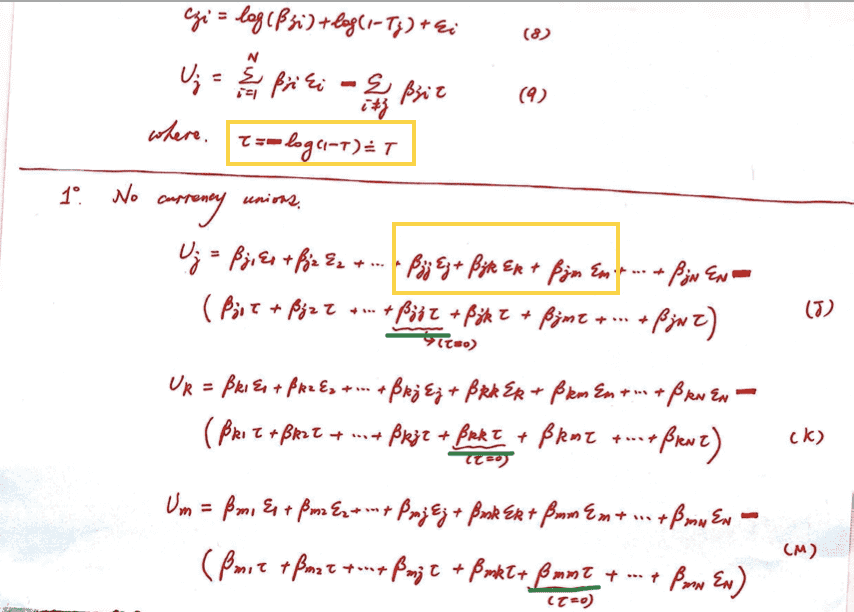 c_{ji} = log(β_{ji}) + log(1-T_j) + ε_i (8)
U_j = Σ_{i=1}^{N} β_{ji} ε_i − Σ_{i≠j} β_{ji} τ (9)
where. τ = − log(1-T) ≐ T
1°. No currency unions.
U_j = β_{j1}ε_1 + β_{j2} ε_2 + ... + β_{jj} ε_j + β_{jk} ε_k + β_{jm} ε_m + ... + β_{jN} ε_N −
(β_{j1} τ + β_{j2} τ + ... + β_{jj} τ + β_{jk} τ + β_{jm} τ + ... + β_{jN} τ) (J)
↳(τ=0)
U_k = β_{k1} ε_1 + β_{k2} ε_2 + ... + β_{kj} ε_j + β_{kk} ε_k + β_{km} ε_m + ... + β_{kN} ε_N −
(β_{k1} τ + β_{k2} τ + ... + β_{kj} τ + β_{kk} τ + β_{km} τ + ... + β_{kN} τ) (K)
(τ=0)
U_m = β_{m1} ε_1 + β_{m2} ε_2 + ... + β_{mj} ε_j + β_{mk} ε_k + β_{mm} ε_m + ... + β_{mN} ε_N −
(β_{m1} τ + β_{m2} τ + ... + β_{mj} τ + β_{mk} τ + β_{mm} τ + ... + β_{mN} ε_N) (M)
(τ=0)